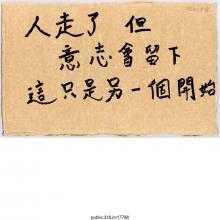 人走了 但
意志會留下
這只是另一個開始
public.318.io/7786